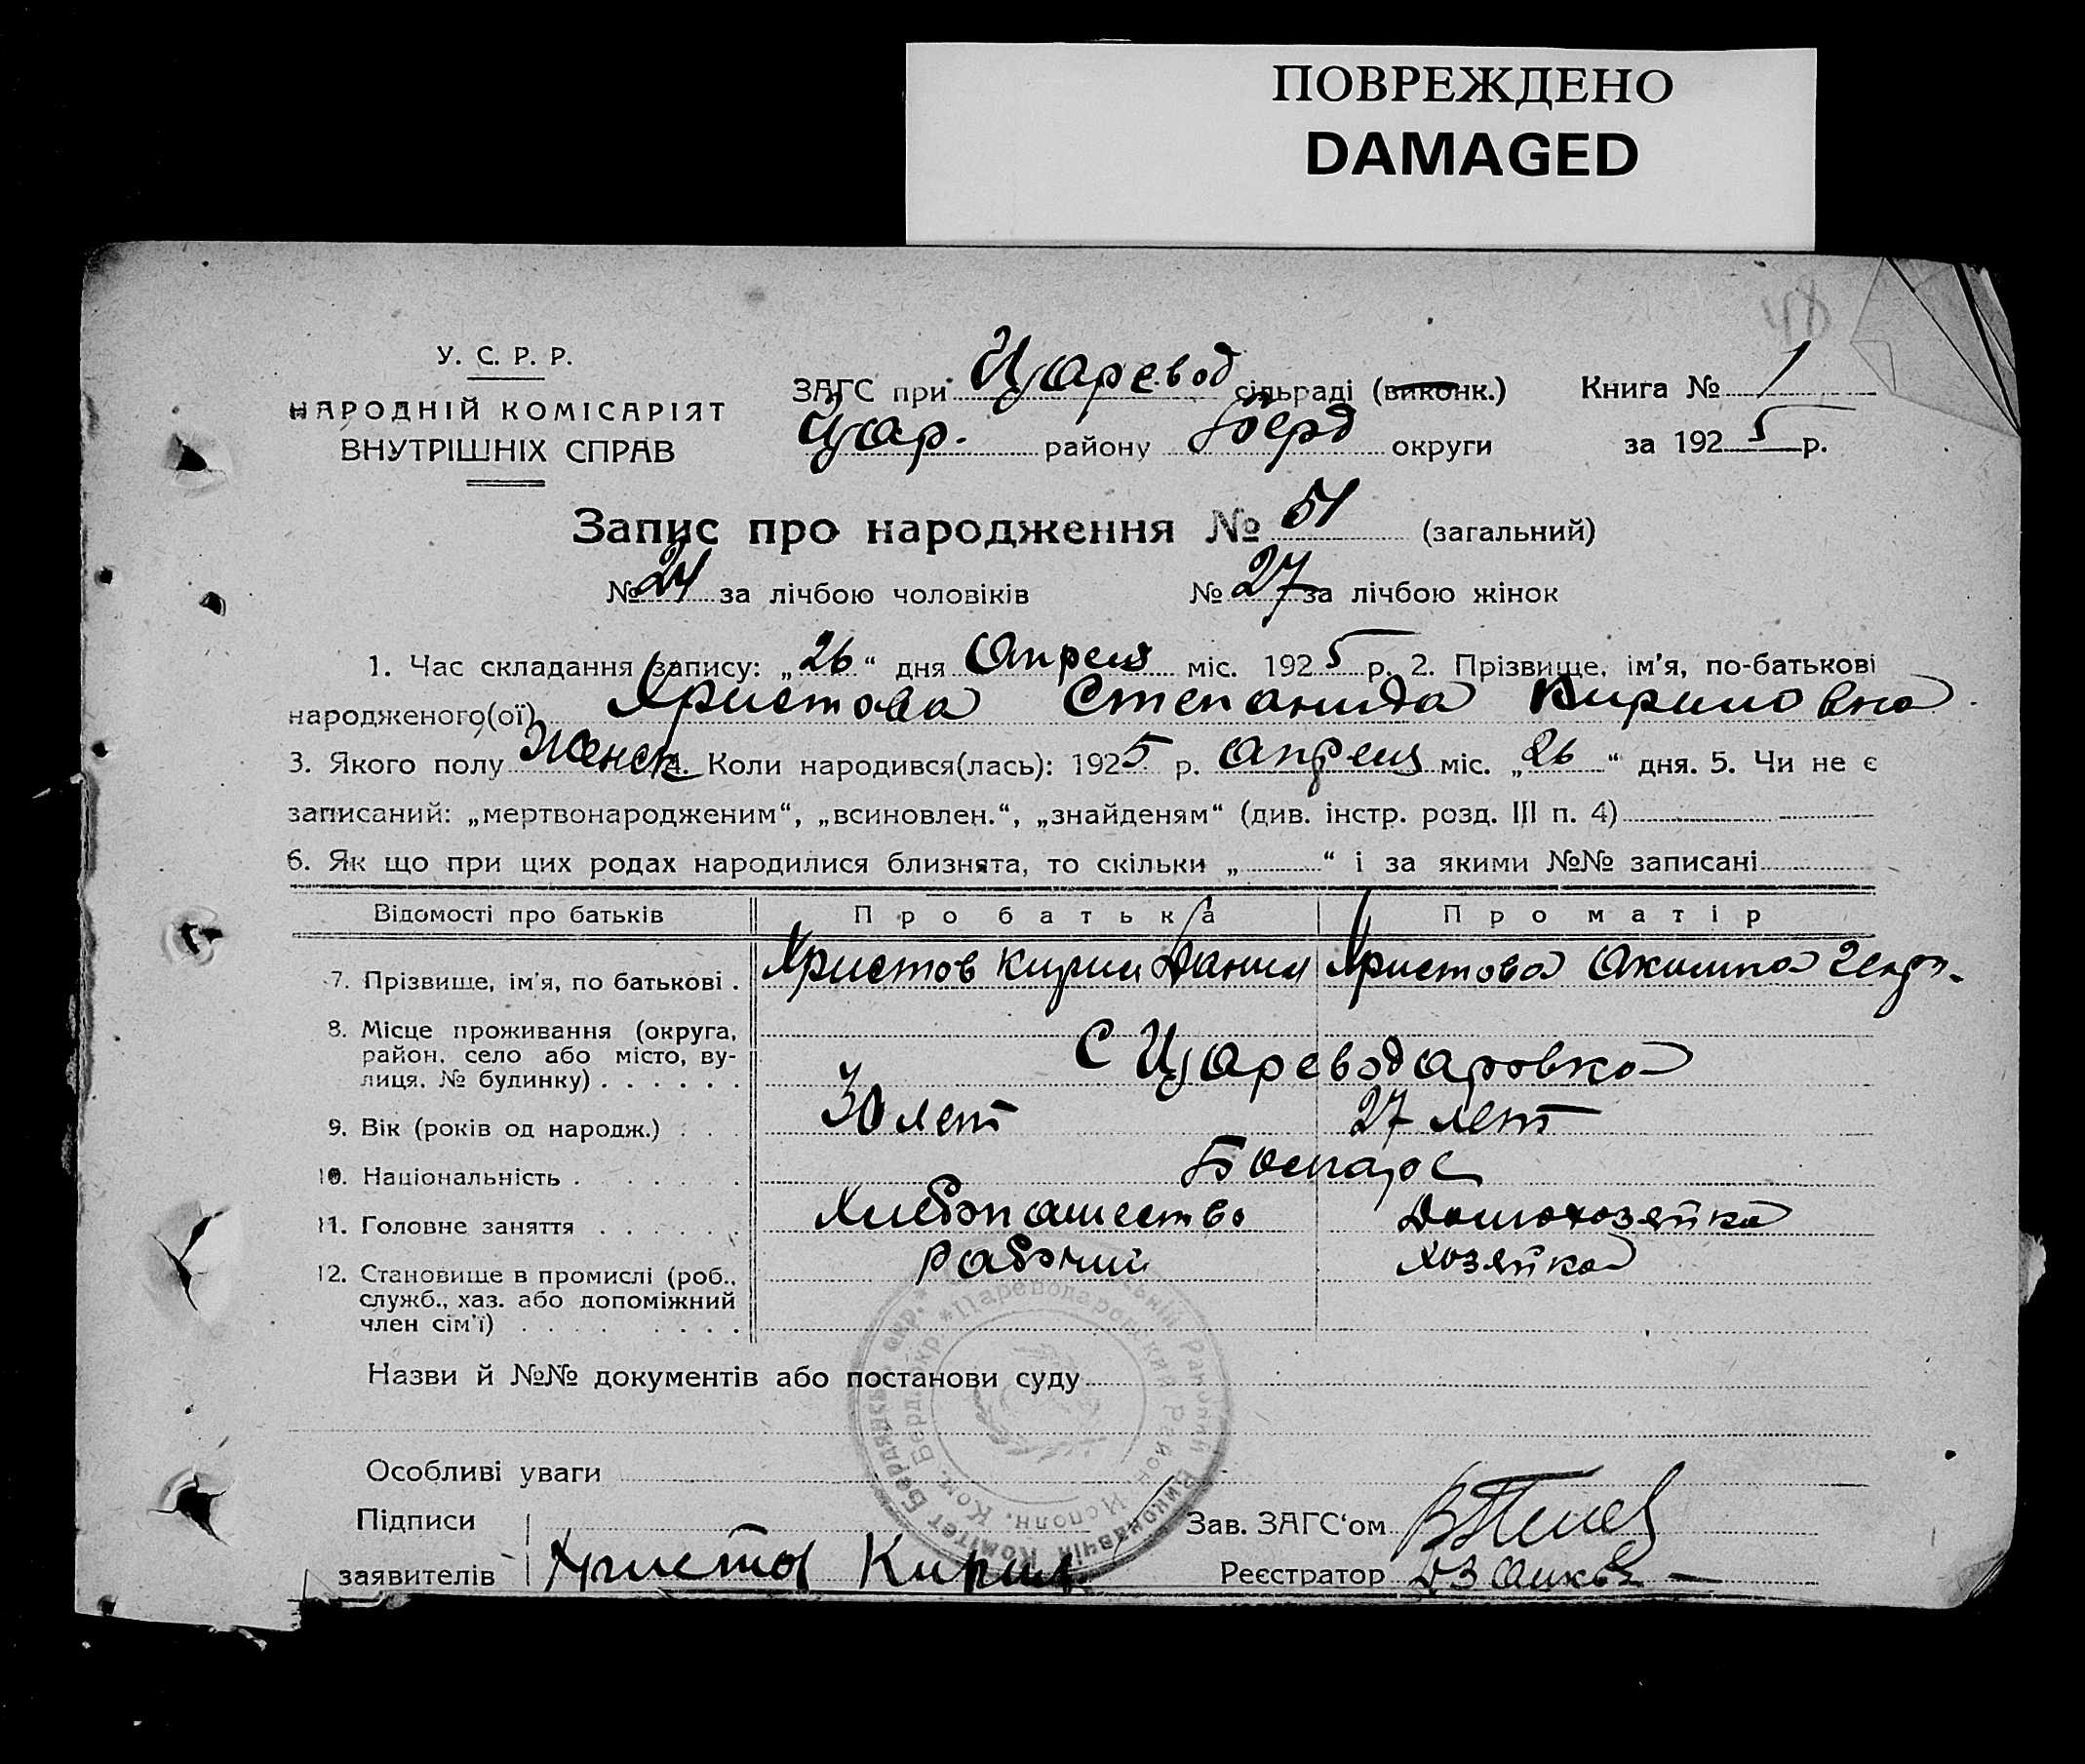 ПОВРЕЖДЕНО
DAMAGED
48
У. С. Р. Р.
НАРОДНІЙ КОМІСАРІЯТ
ВНУТРІШНІХ СПРАВ
ЗАГС при Царевод сільраді (виконк.) Книга № 1
Цар. району Берд округи за 1925 р.
Запис про народження № 51 (загальний)
№ 24 за лічбою чоловіків № 27 за лічбою жінок
1. Час складання запису: „26“ дня Апреля міс. 1925 р. 2. Прізвище, ім’я, по-батькові
народженого(ої) Христова Степанида Кириловна
3. Якого полу Женск 4. Коли народився(лась): 1925 р. Апреля міс. „26“ дня. 5. Чи не є
записаний: „мертвонародженим“, „всиновлен.“, „знайденям“ (див. інстр. розд. III п. 4)
6. Як що при цих родах народилися близнята, то скільки „ “ і за якими №№ записані
Відомості про батьків Про батька Про матір
7. Прізвище, ім’я, по батькові . Христов Кирил Данил Христова Акилина
8. Місце проживання (округа,
район, село або місто, ву-
лиця, № будинку) . . . . . . С Цареводаровка
9. Вік (років од народж.) . . . 30 лет 27 лет
10. Національність . . . . . . .
11. Головне заняття . . . . . . Хлебопашество Домохозяйка
12. Становище в промислі (роб., Рабочий хозяйка
служб., хаз. або допоміжний
член сім’ї) . . . . . . . .
Назви й №№ документів або постанови суду
Особливі уваги
Підписи Зав. ЗАГС‘ом
заявителів Христов Кирил Реєстратор
Районний Виконавчій Комітет Бердянськ. окр.
Цареводаровский Район. Исполн. Ком. Берд. окр.